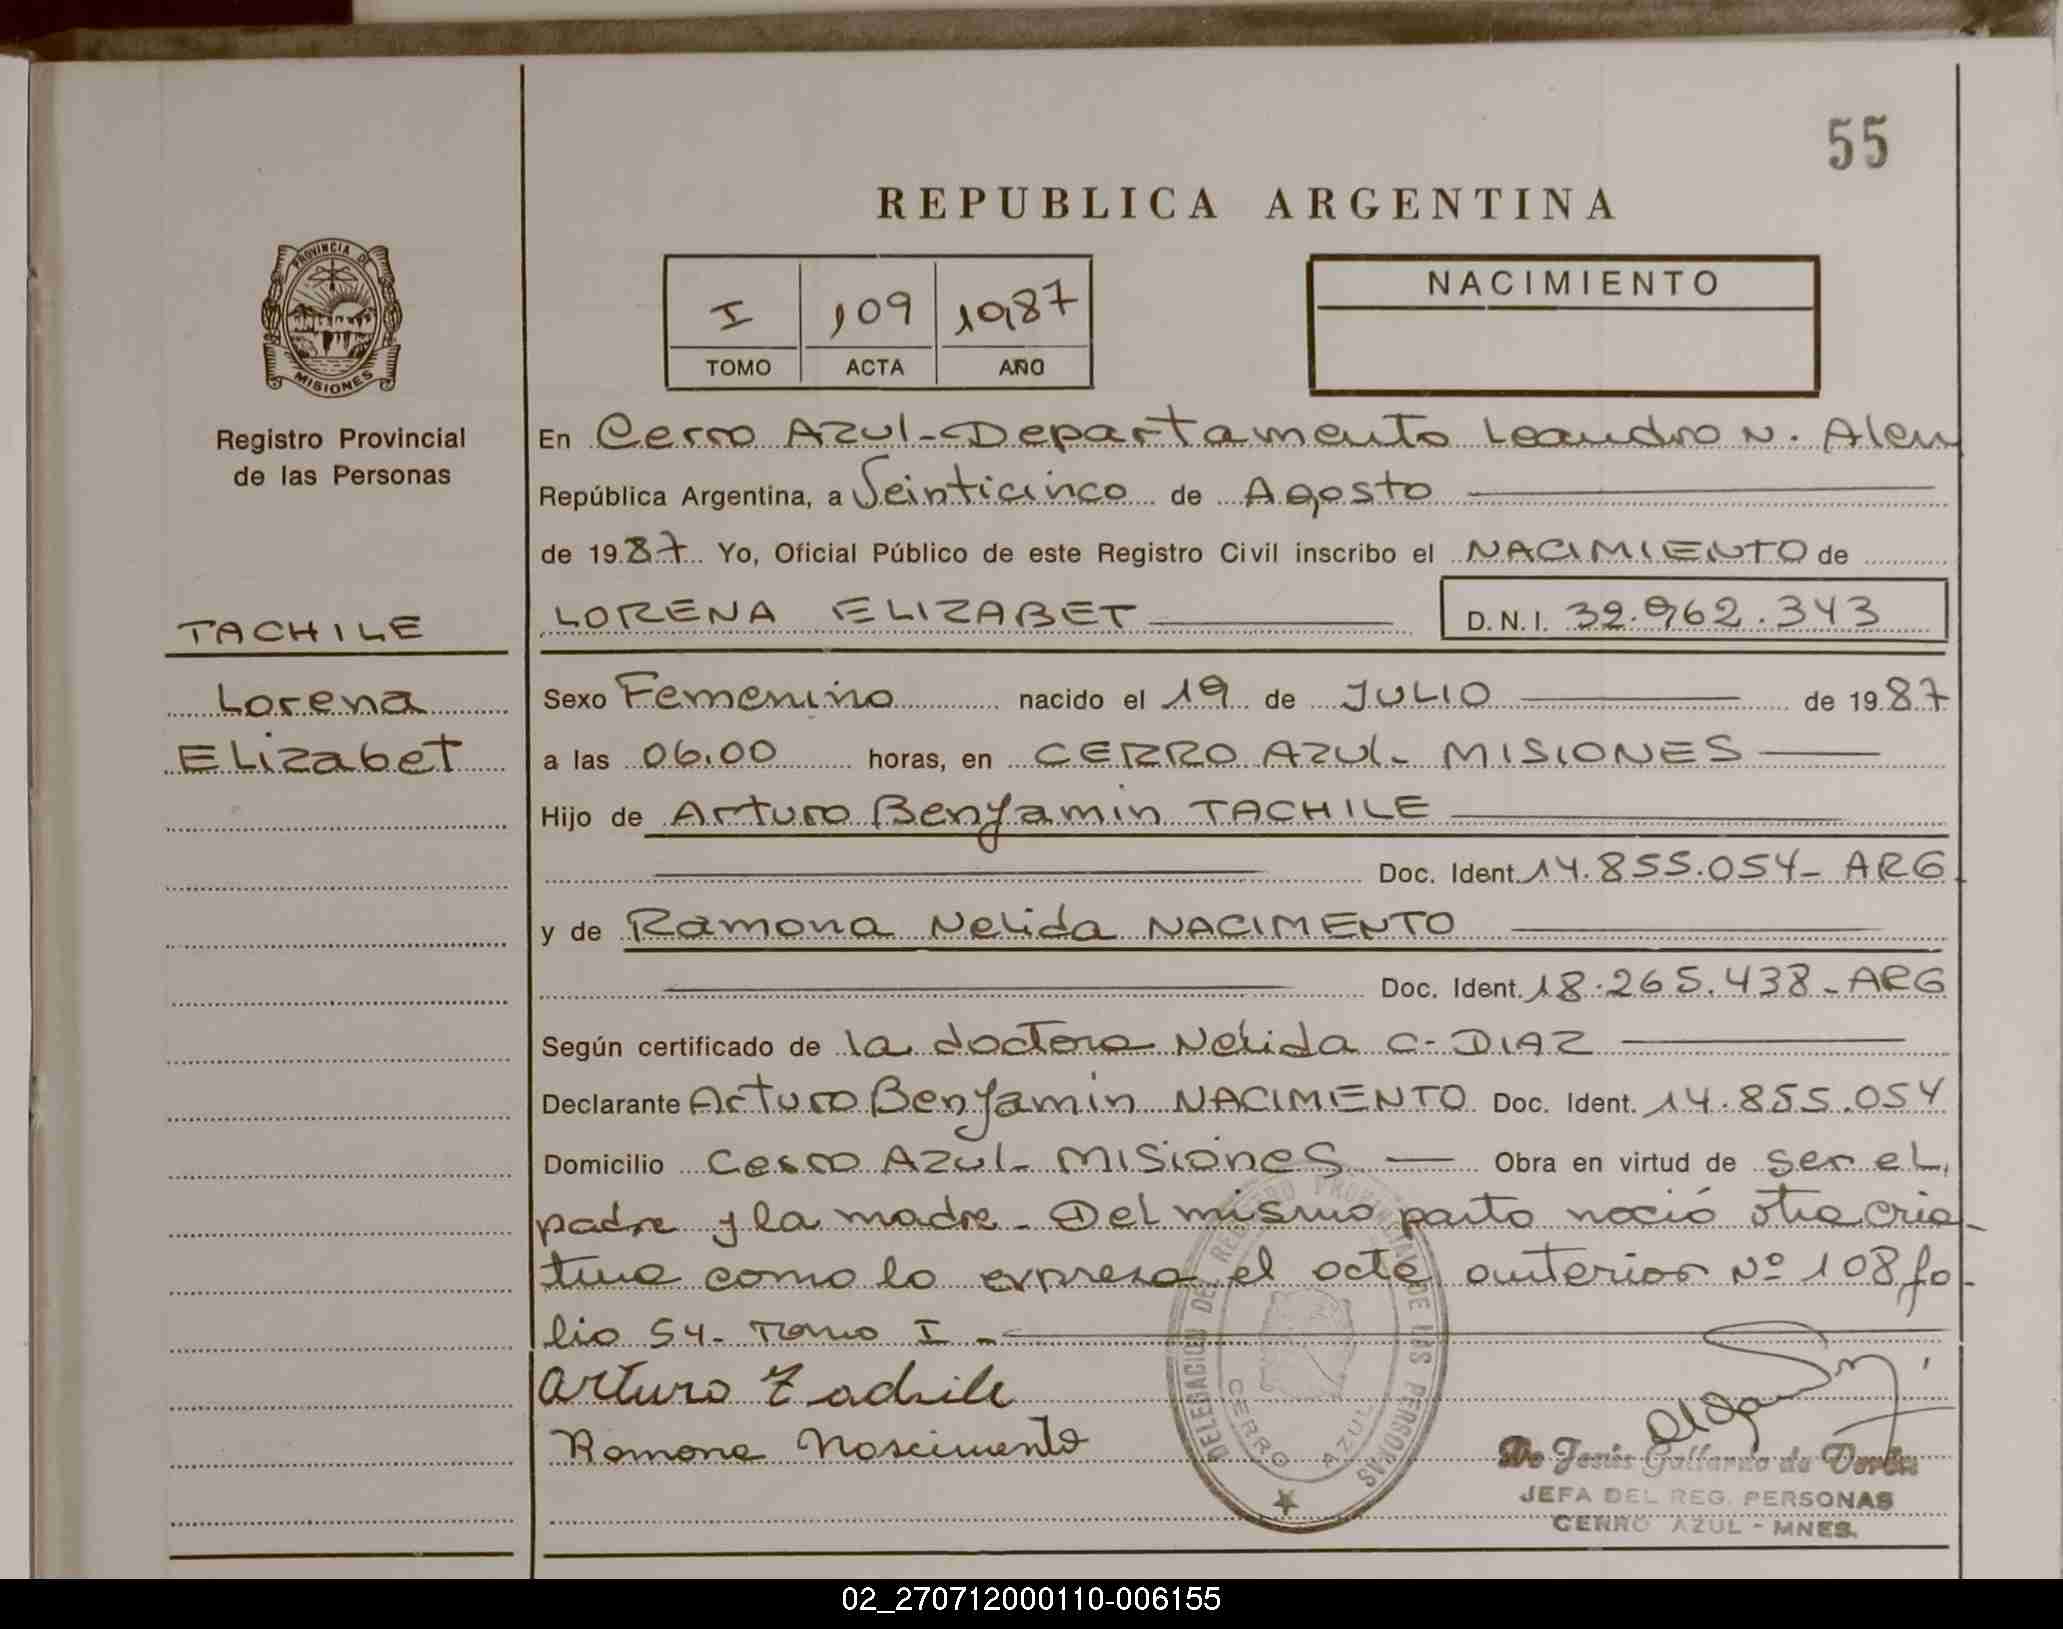 55
REPUBLICA ARGENTINA
PROVINCIA DE
MISIONES
Registro Provincial
de las Personas
I 109 1987
TOMO ACTA AÑO
NACIMIENTO
En Cerro Azul-Departamento Leandro N. Alem
República Argentina, a Veinticinco de Agosto
de 1987 Yo, Oficial Público de este Registro Civil inscribo el NACIMIENTO de
TACHILE
LORENA ELIZABET D.N.I. 32.962.343
Lorena
Elizabet
Sexo Femenino nacido el 19 de JULIO de 1987
a las 06.00 horas, en CERRO AZUL- MISIONES
Hijo de Arturo Benjamin TACHILE
Doc. Ident. 14.855.054- ARG
y de Ramona Nelida NACIMENTO
Doc. Ident. 18.265.438- ARG
Según certificado de la doctora Nelida C- DIAZ
Declarante Arturo Benjamin NACIMENTO Doc. Ident. 14.855.054
Domicilio Cerro Azul- Misiones Obra en virtud de ser el
padre y la madre- Del mismo parto nació otra cria-
tura como lo expresa el acta anterior Nº 108 fo-
lio 54- Tomo I -
Arturo Tachile
Ramona Nascimento
DELEGACION DEL REGISTRO PROVINCIAL DE LAS PERSONAS
CERRO AZUL
De Jesús Gallardo de
JEFA DEL REG. PERSONAS
CERRO AZUL - MNES.
02_270712000110-006155